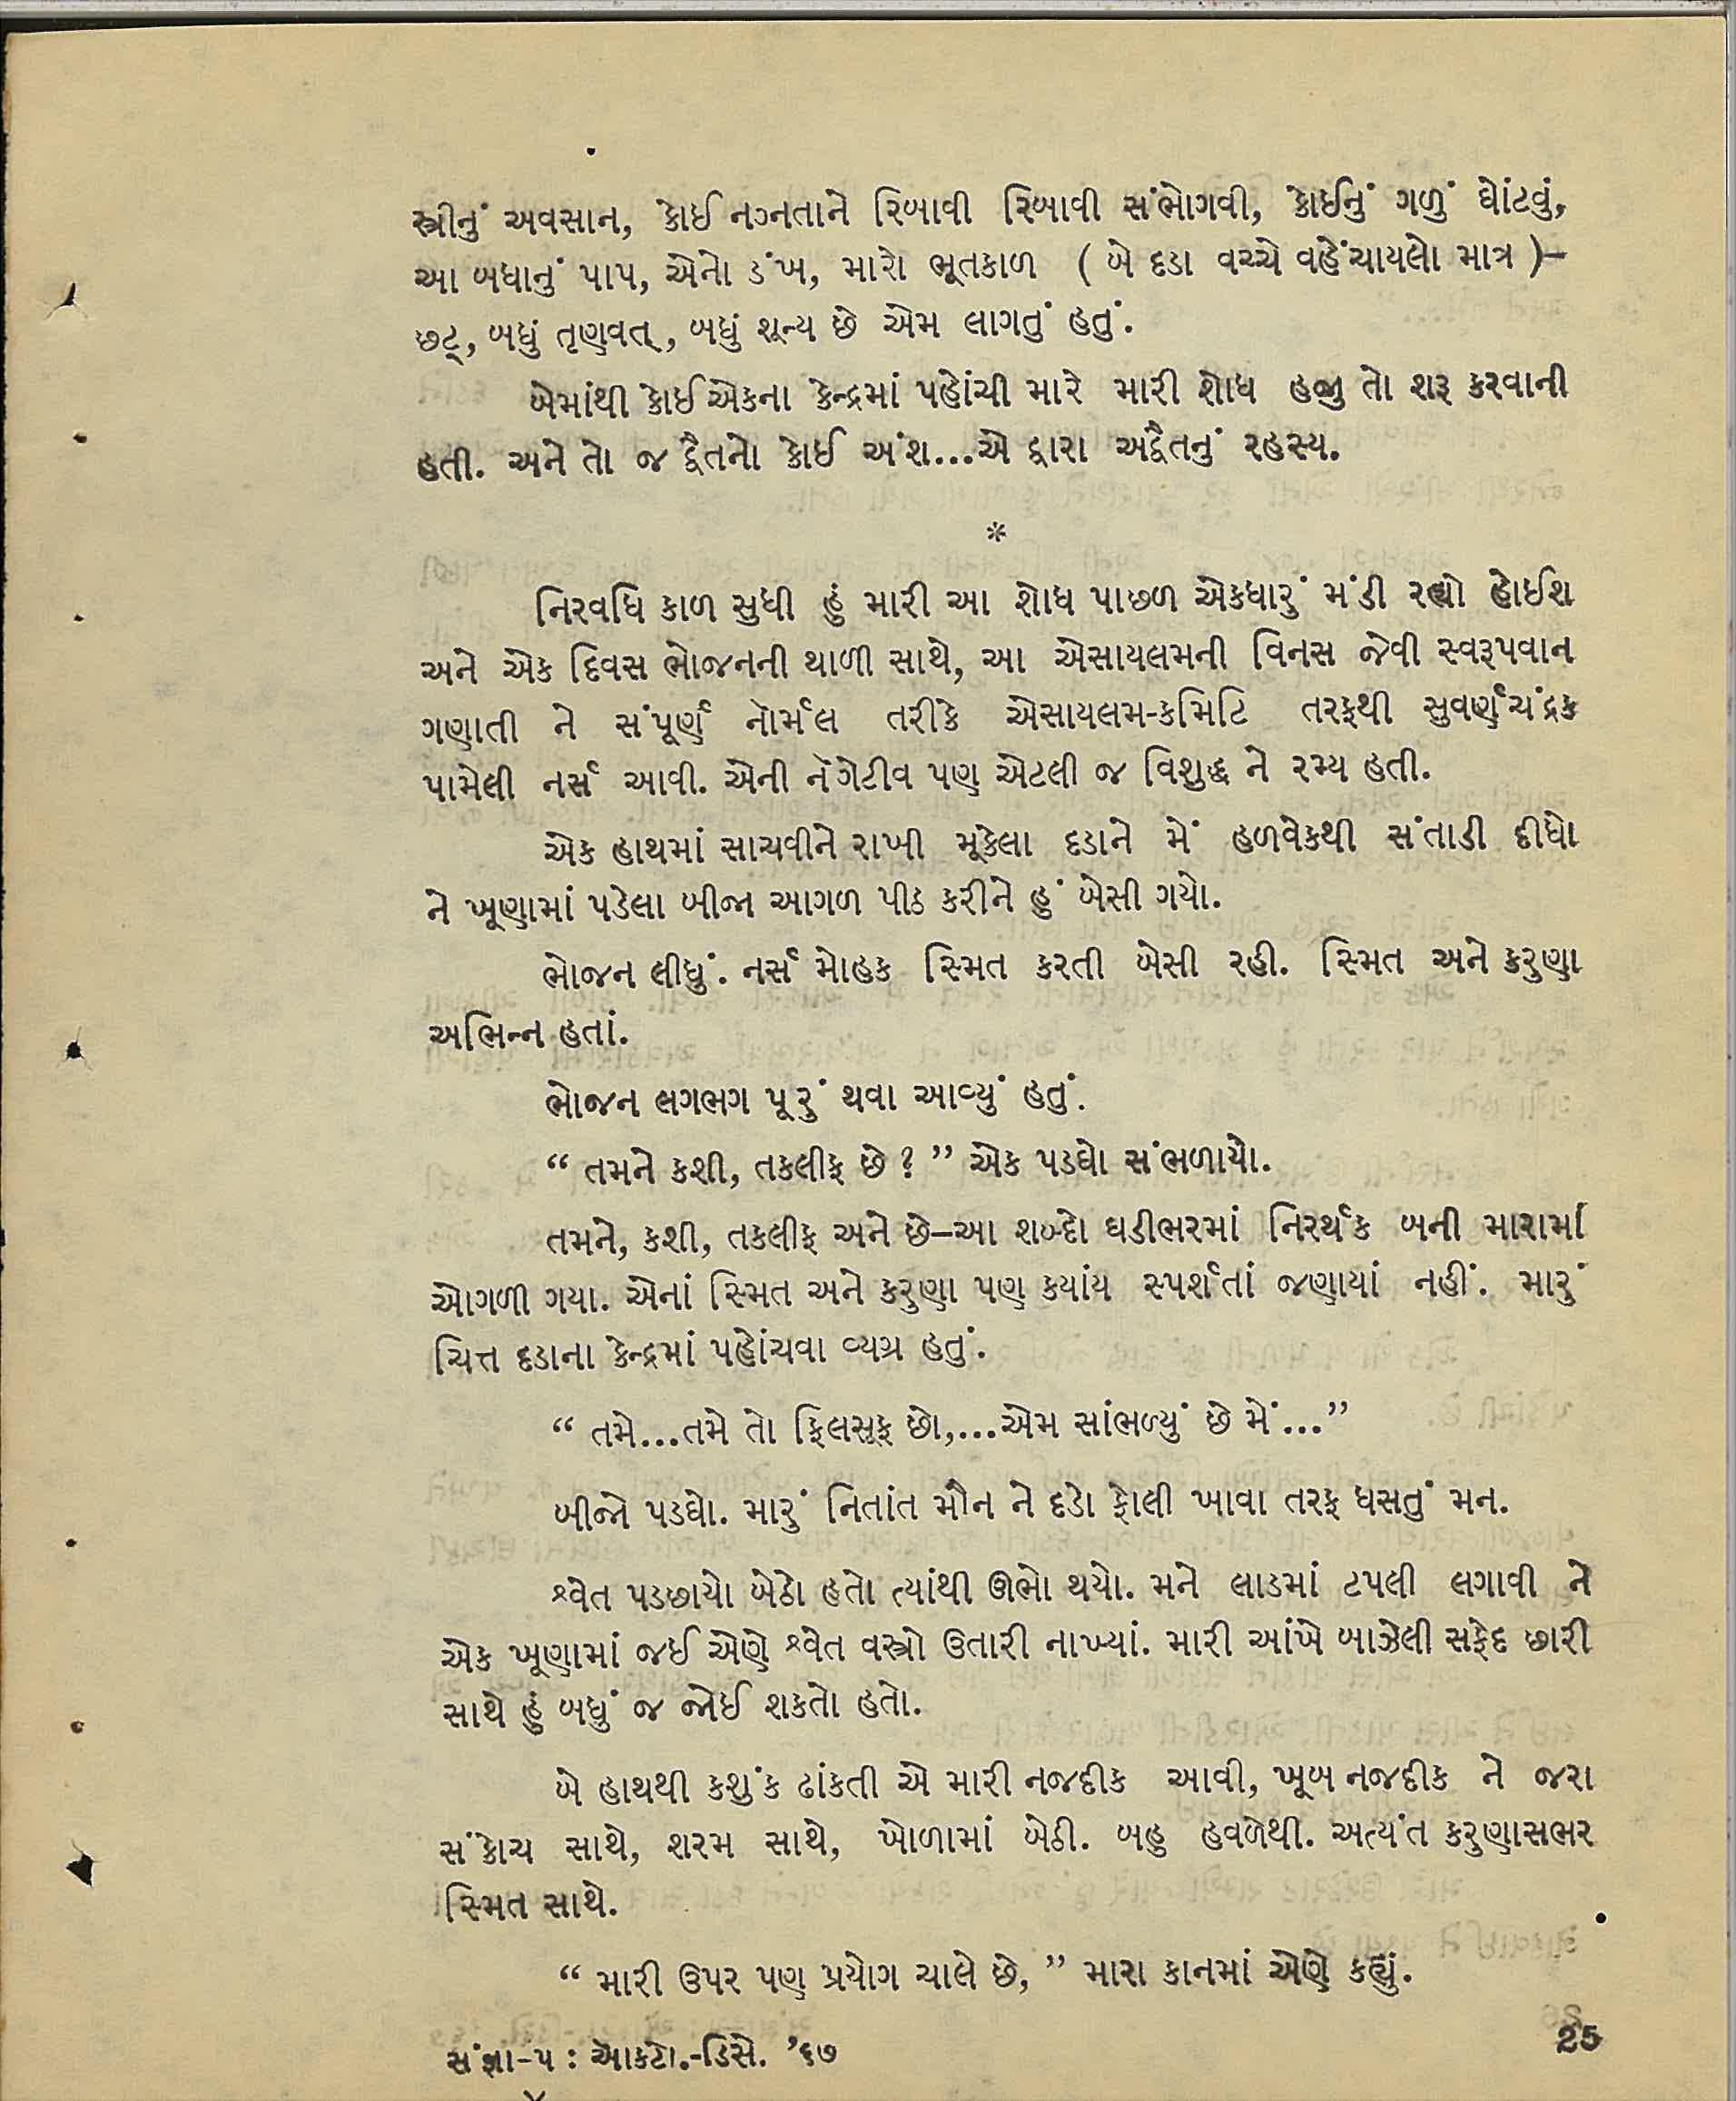 સ્ત્રીનું અવસાન, કોઈ નગ્નતાને રિબાવી રિબાવી સંભોગવી, કોઈનું ગળું ઘોંટવું,
આ બધાનું પાપ, એનો ડંખ, મારો ભૂતકાળ ( બે દડા વચ્ચે વહેંચાયલો માત્ર )–
છટ્, બધું તૃણવત્, બધું શૂન્ય છે એમ લાગતું હતું.
બેમાંથી કોઈ એકના કેન્દ્રમાં પહોંચી મારે મારી શોધ હજુ તો શરૂ કરવાની
હતી. અને તો જ દ્વૈતનો કોઈ અંશ...એ દ્વારા અદ્વૈતનું રહસ્ય.
*
નિરવધિ કાળ સુધી હું મારી આ શોધ પાછળ એકધારું મંડી રહ્યો હોઈશ
અને એક દિવસ ભોજનની થાળી સાથે, આ એસાયલમની વિનસ જેવી સ્વરૂપવાન
ગણાતી ને સંપૂર્ણ નૉર્મલ તરીકે એસાયલમ-કમિટિ તરફથી સુવર્ણચંદ્રક
પામેલી નર્સ આવી. એની નેગેટીવ પણ એટલી જ વિશુદ્ધ ને રમ્ય હતી.
એક હાથમાં સાચવીને રાખી મૂકેલા દડાને મેં હળવેકથી સંતાડી દીધો
ને ખૂણામાં પડેલા બીજા આગળ પીઠ કરીને હું બેસી ગયો.
ભોજન લીધું. નર્સ મોહક સ્મિત કરતી બેસી રહી. સ્મિત અને કરુણા
અભિન્ન હતાં.
ભોજન લગભગ પૂરું થવા આવ્યું હતું.
“ તમને કશી, તકલીફ છે ? ” એક પડઘો સંભળાયો.
તમને, કશી, તકલીફ અને છે–આ શબ્દો ઘડીભરમાં નિરર્થક બની મારામાં
ઓગળી ગયા. એનાં સ્મિત અને કરુણા પણ કયાંય સ્પર્શતાં જણાયાં નહીં. મારું
ચિત્ત દડાના કેન્દ્રમાં પહોંચવા વ્યગ્ર હતું.
“ તમે...તમે તો ફિલસૂફ છો,...એમ સાંભળ્યું છે મેં...”
બીજો પડઘો. મારું નિતાંત મૌન ને દડો ફોલી ખાવા તરફ ધસતું મન.
શ્વેત પડછાયો બેઠો હતો ત્યાંથી ઊભો થયો. મને લાડમાં ટપલી લગાવી ને
એક ખૂણામાં જઈ એણે શ્વેત વસ્ત્રો ઉતારી નાખ્યાં. મારી આંખે બાઝેલી સફેદ છારી
સાથે હું બધું જ જોઈ શકતો હતો.
બે હાથથી કશુંક ઢાંકતી એ મારી નજદીક આવી, ખૂબ નજદીક ને જરા
સંકોચ સાથે, શરમ સાથે, ખોળામાં બેઠી. બહુ હવળેથી. અત્યંત કરુણાસભર
સ્મિત સાથે.
“ મારી ઉપર પણ પ્રયોગ ચાલે છે, ” મારા કાનમાં એણે કહ્યું.
સંજ્ઞા-૫ : ઑકટો.-ડિસે. ’૬૭
25